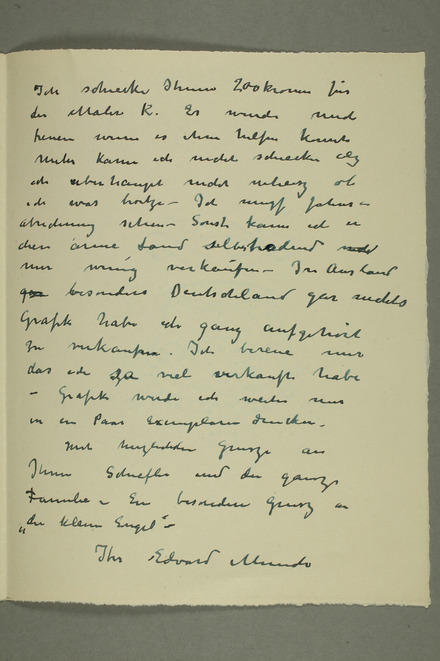 Ich schecke Ihnen 200 kronen für
der Maler K. Es wurde mich
freuen wenn es ihm helfen kannte
Mehr kann ich nicht schecken
ich uberhaupt nicht ob
ich was besitze – Ich muss Jahres=
abrechnung sehen – Sonst kann ich in
diesen arme Land selbstredend
nur wenig verkaufen – Im Ausland
besonders Deutschland gar nichts
Grafik habe ich ganz aufgehört
zu verkaufen. Ich bereue nur
das ich zu viel verkauft habe
– Grafik werde ich weiter nur
in ein Paar Exemplaren drucken –
Mit herzlichen Grusze an
Ihnen Schiefler und die ganze
Familie – Ein besonderen Grusz an
„die kleine Engel" –
Ihr Edvard Munch